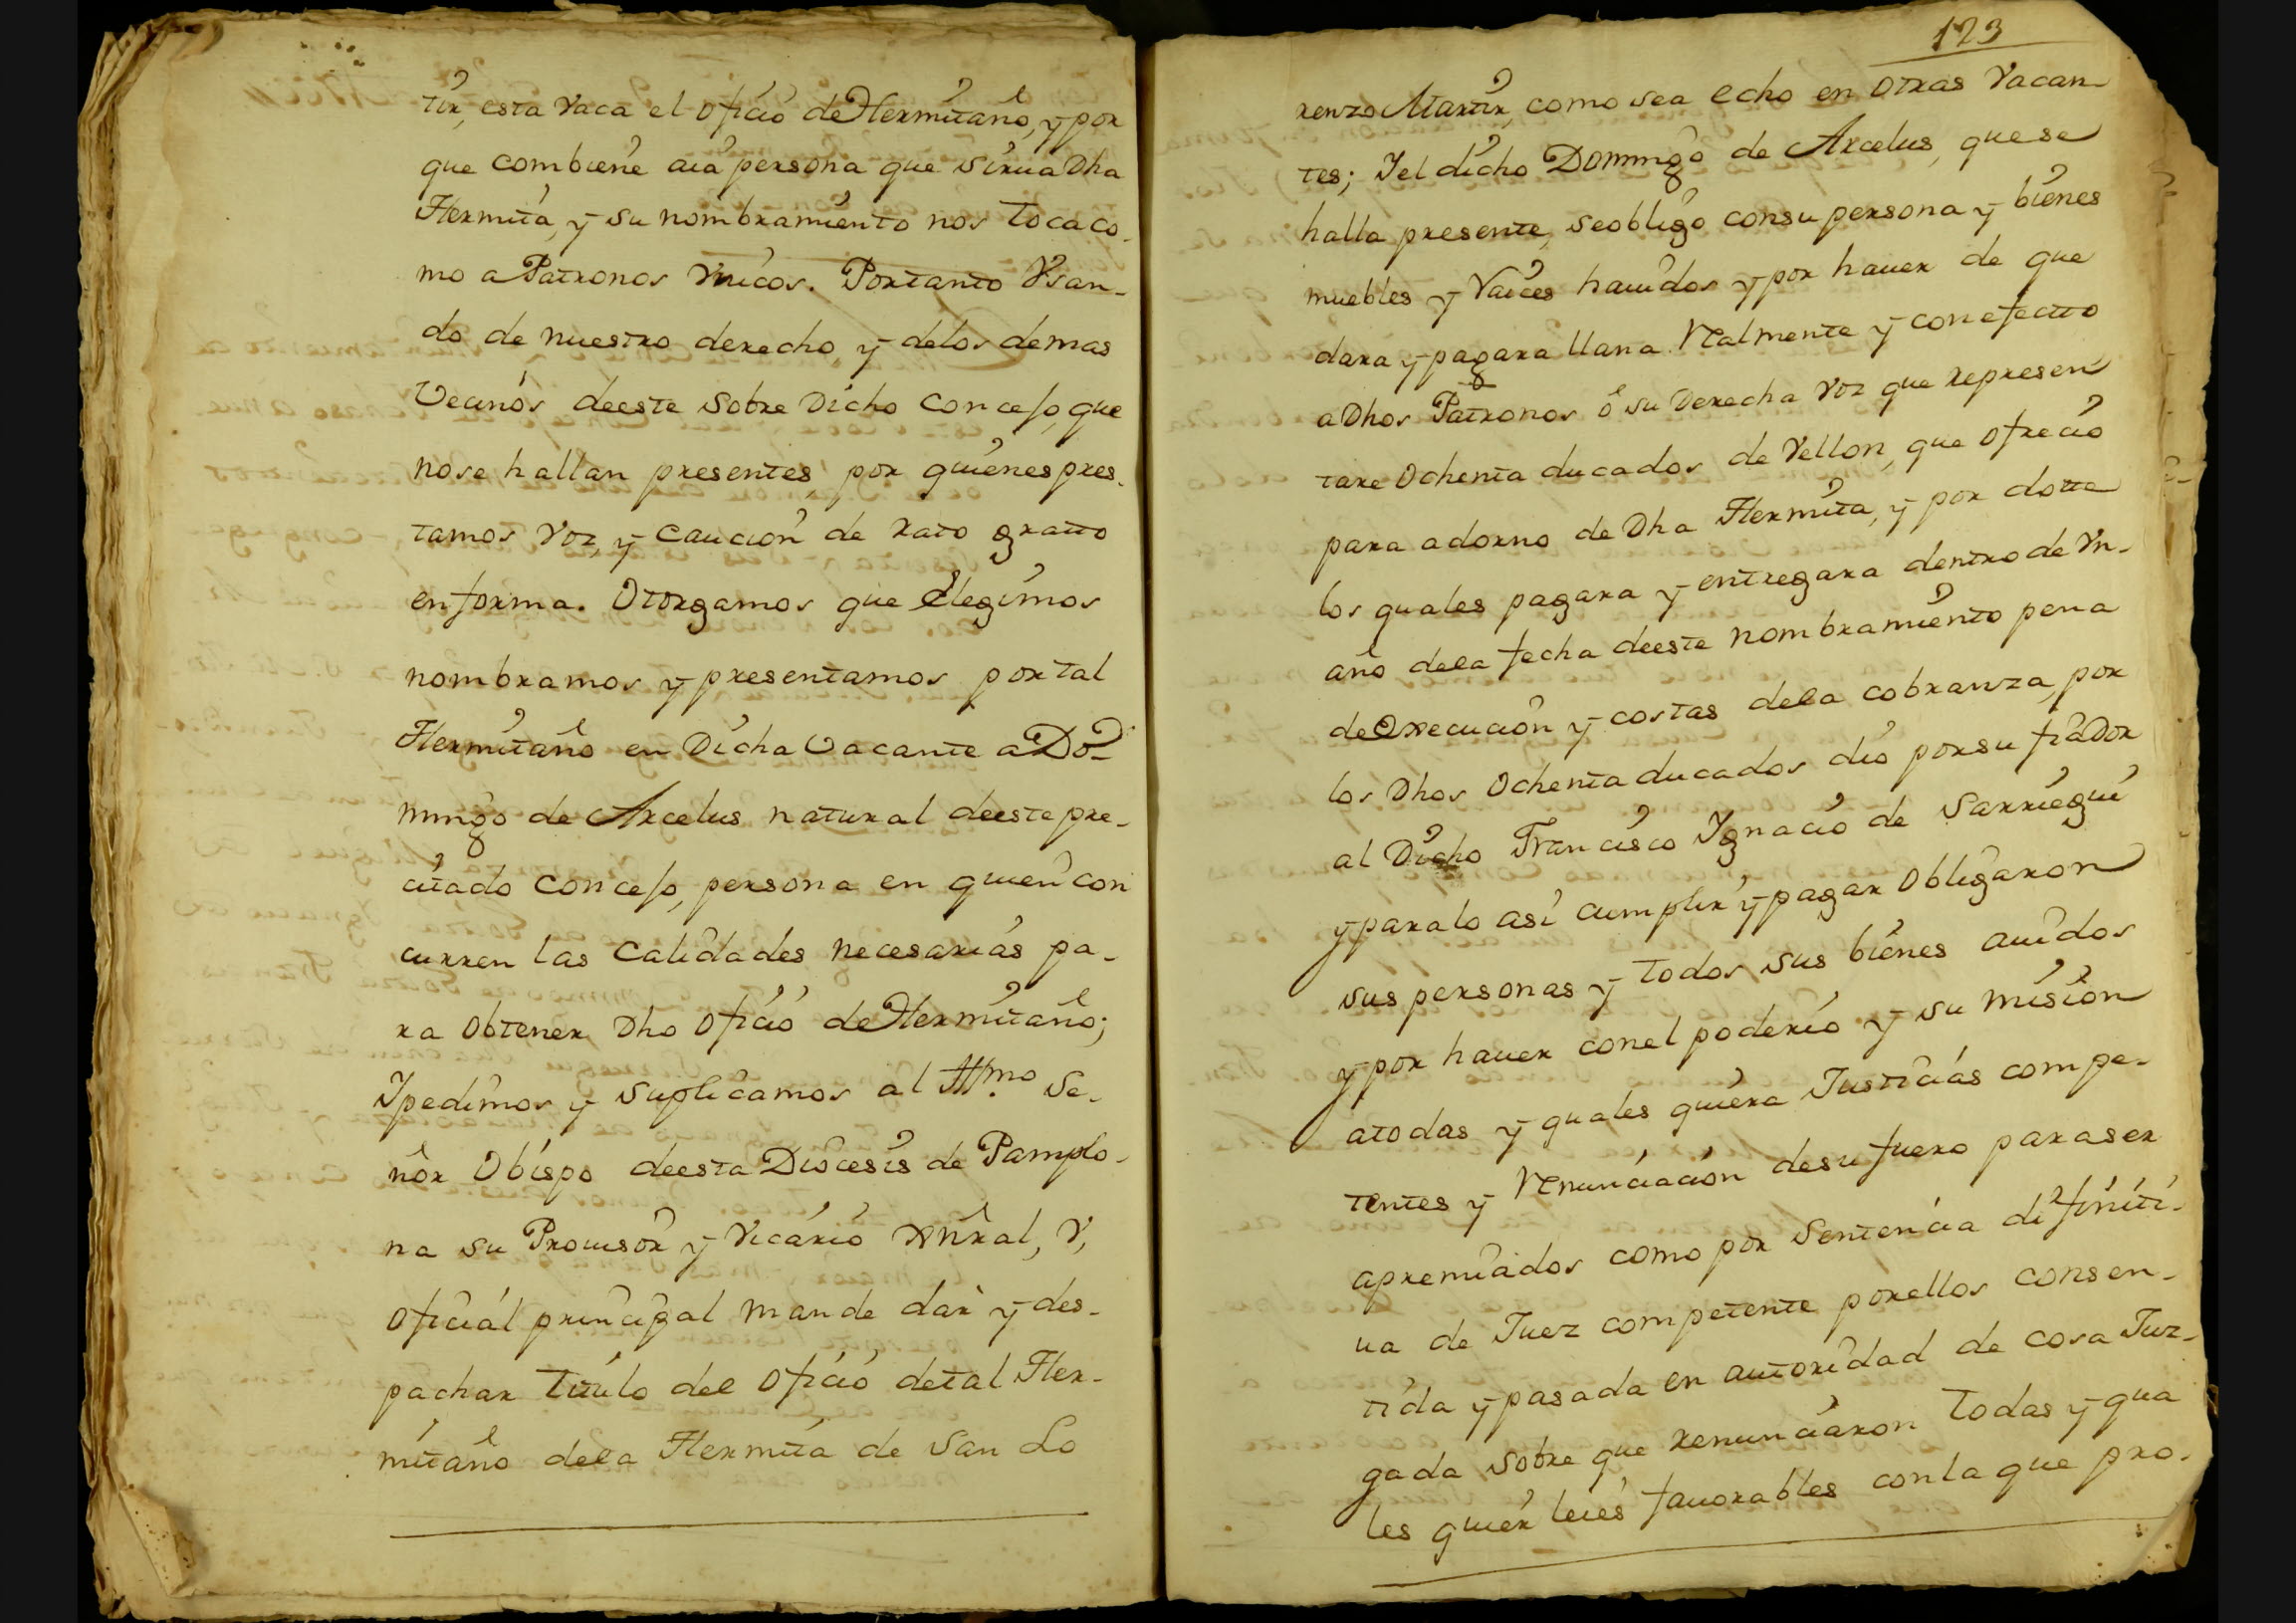 tir, esta vaca el oficio de Hermitaño, y por
que combiene aia persona que sirua Dha
Hermita, y su nombramiento nos toca co-
mo a Patronos vnicos. Portanto Vsan-
do de nuestro derecho y delos demas
Vecinos deeste sobre Dicho Concejo, que
nose hallan presentes, por quienes pres-
tamos voz, y caucion de rato gratto
enforma. Otorgamos que Elegimos
nombramos y presentamos por tal
Hermitaño en Dicha Vacante a Do-
mingo de Arcelus natural deeste pre-
citado Concejo, persona en quien con
curren las Calidades necesarias pa-
ra obtener Dho oficio de Hermitaño;
Ypedimos y suplicamos al Illmo. Se-
ñor Obispo deesta Diocesis de Pamplo-
na su Prouisor y Vicario Gñral, V,
oficial principal mande dar y des-
pachar titulo del oficio detal Her-
mitaño dela Hermita de San Lo
123
renzo Martir, como sea echo en otras Vacan-
tes; Y el dicho Domingo de Arcelus, quese
halla presente, seobligo consu persona y bienes
muebles y Raices hauidos y por hauer de que
dara y pagara llana Realmente y conefectto
a Dhos Patronos ó su Derecha voz que represen
tare Ochenta ducados de Vellon, que ofrecio
para adorno de Dha Hermita, y por dotte
los quales pagara y entregara dentro de Vn-
año dela fecha deeste nombramiento pena
de Execucion y costas dela cobranza, por
los Dhos Ochenta ducados dio porsu fiaDor
al Dicho Francisco Ygnacio de Sarriegui
y paralo asi cumplir y pagar obligaron
sus personas y todos sus bienes auidos
y por hauer conel poderio y su mision
atodas y quales quiera Justicias compe-
tentes y Renunciacion desu fuero paraser
apremiados como por Sentencia difiniti-
ua de Juez competente porellos consen-
tida y pasada en autoridad de cosa Juz-
gada sobre que renunciaron todas y qua
les quier leies fauorables conla que pro-